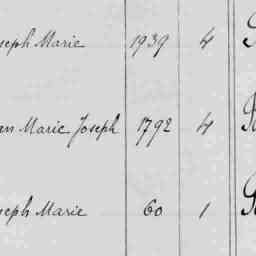 seph Marie 1939 4
an Marie Joseph 1792 4
seph Marie 60 1